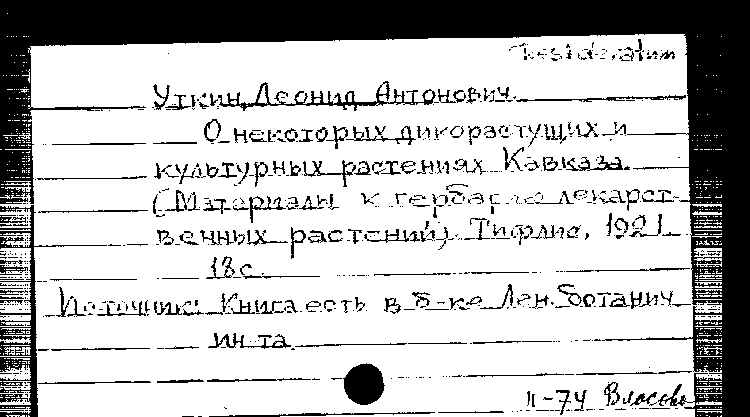 Desideratum
Уткин, Леонид Антонович.
О некоторых дикорастущих и
культурных растениях Кавказа.
(Материалы к гербарию лекарст-
венных растений). Тифлис, 1921.
18 с.
Источник: Книга есть в б-ке Лен. ботанич.
ин-та.
II-74 Власова